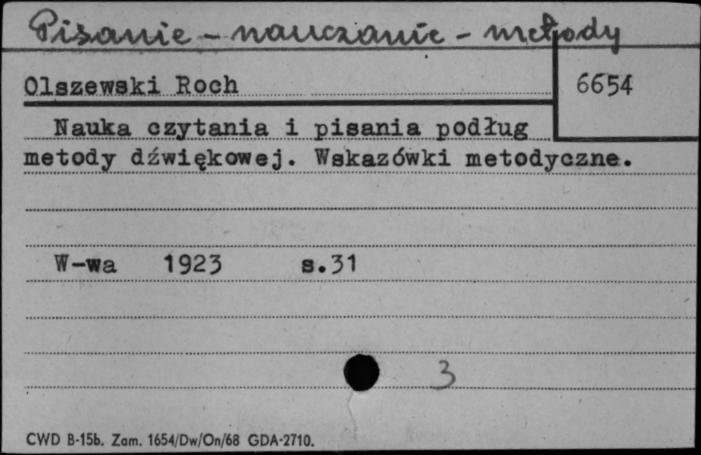 Pisanie - nauczanie - metody
Olszewski Roch 6654
Nauka czytania i pisania podług
metody dźwiękowej. Wskazówki metodyczne.
W-wa 1923 s.31
3
CWD B-15b. Zam. 1654/Dw/On/68 GDA-2710.